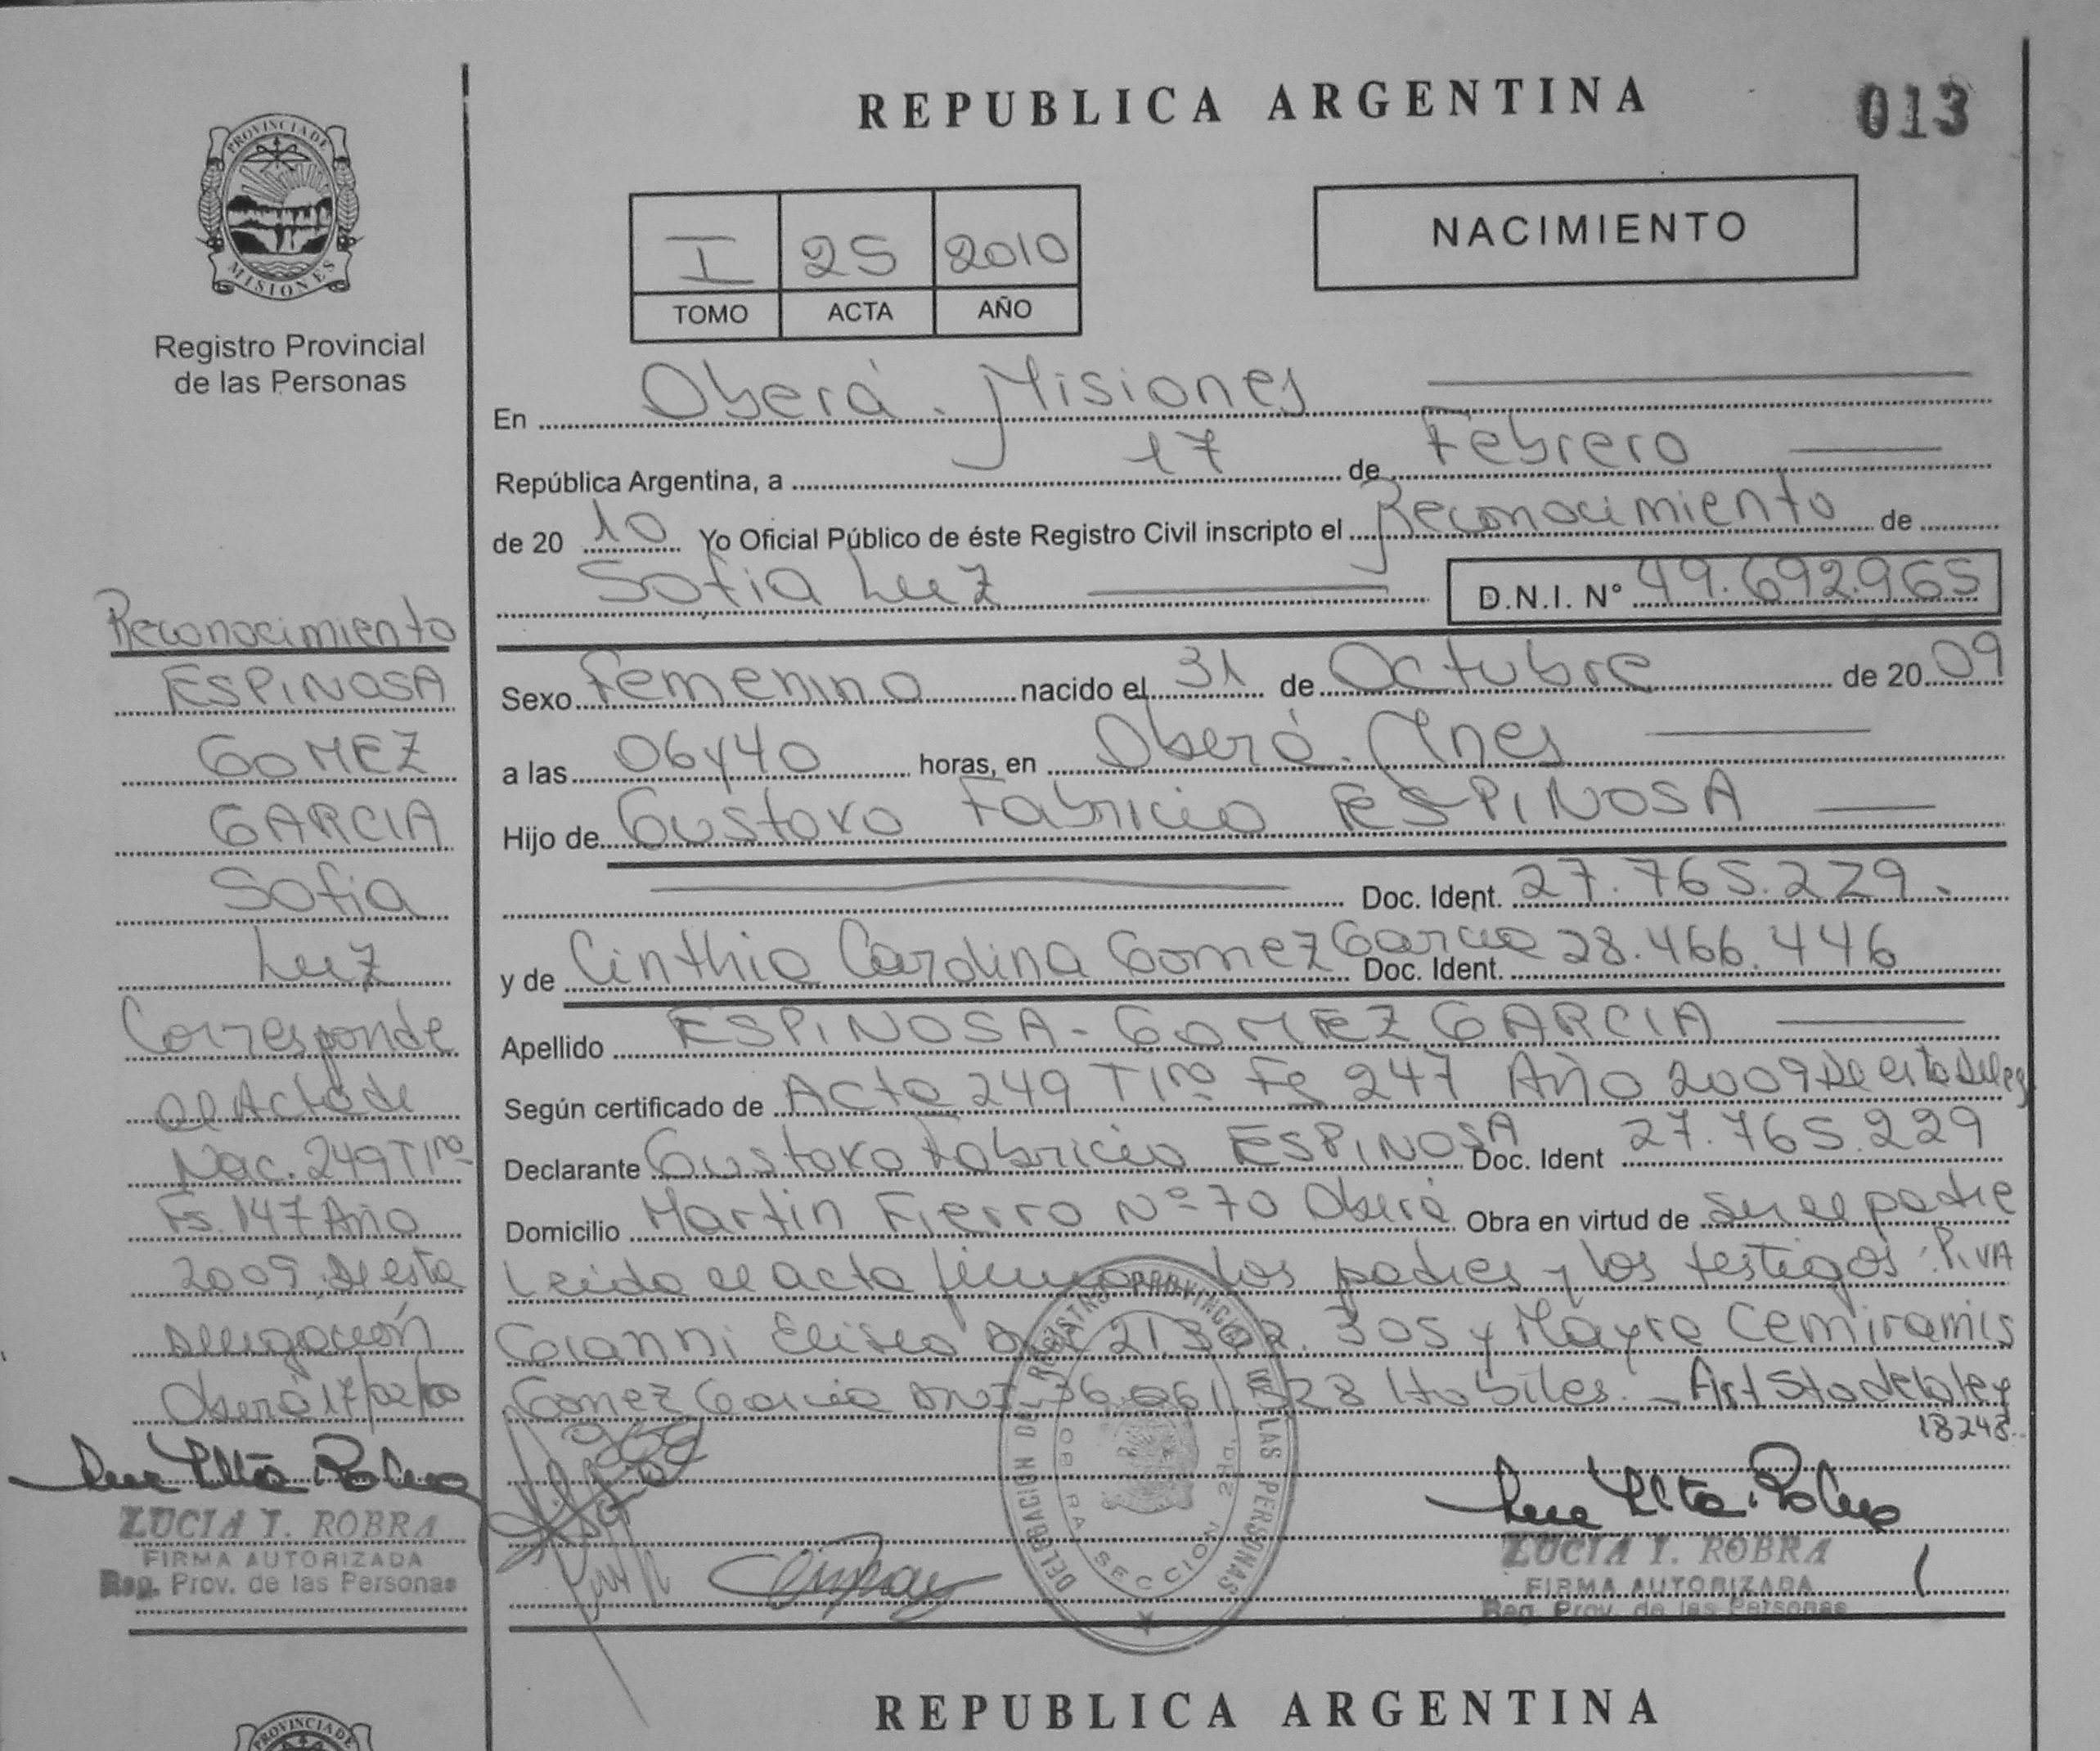 REPUBLICA ARGENTINA
013
PROVINCIA DE
MISIONES
Registro Provincial
de las Personas
I 25 2010
TOMO ACTA AÑO
NACIMIENTO
En Oberá. Misiones
República Argentina, a 17 de Febrero
de 20 10 Yo Oficial Público de éste Registro Civil inscripto el Reconocimiento de
Sofia Luz D.N.I. Nº 49.692.965
Sexo Femenino nacido el 31 de Octubre de 20 09
a las 06y40 horas, en Oberá. Mnes
Hijo de Gustavo Fabricio ESPINOSA
Doc. Ident. 27.765.229.
y de Cinthia Carolina Gomez Garcia Doc. Ident. 28.466.446
Apellido ESPINOSA - GOMEZ GARCIA
Según certificado de Acta 249 T1ro Fs 247 Año 2009 De esta Deleg
Declarante Gustavo Fabricio ESPINOSA Doc. Ident 27.765.229
Domicilio Martin Fierro Nº 70 Oberá Obra en virtud de ser el padre
Leida el acta firman los padres y los testigos: PIVA
Gianni Eliseo 305 y Mayra Cemiramis
Gomez Garcia DNI Habiles. - Art 5to de la ley
18248.
Reconocimiento
ESPINOSA
GOMEZ
GARCIA
Sofia
Luz
Corresponde
al Acta de
Nac. 249 T1ro
Fs. 147 Año
2009. De esta
Delegación
Oberá 17/02/
LUCIA T. ROBRA
FIRMA AUTORIZADA
Reg. Prov. de las Personas
DELEGACION DEL REGISTRO PROVINCIAL DE LAS PERSONAS
SECCION
LUCIA T. ROBRA
FIRMA AUTORIZADA
Reg. Prov. de las Personas
PROVINCIA DE
REPUBLICA ARGENTINA